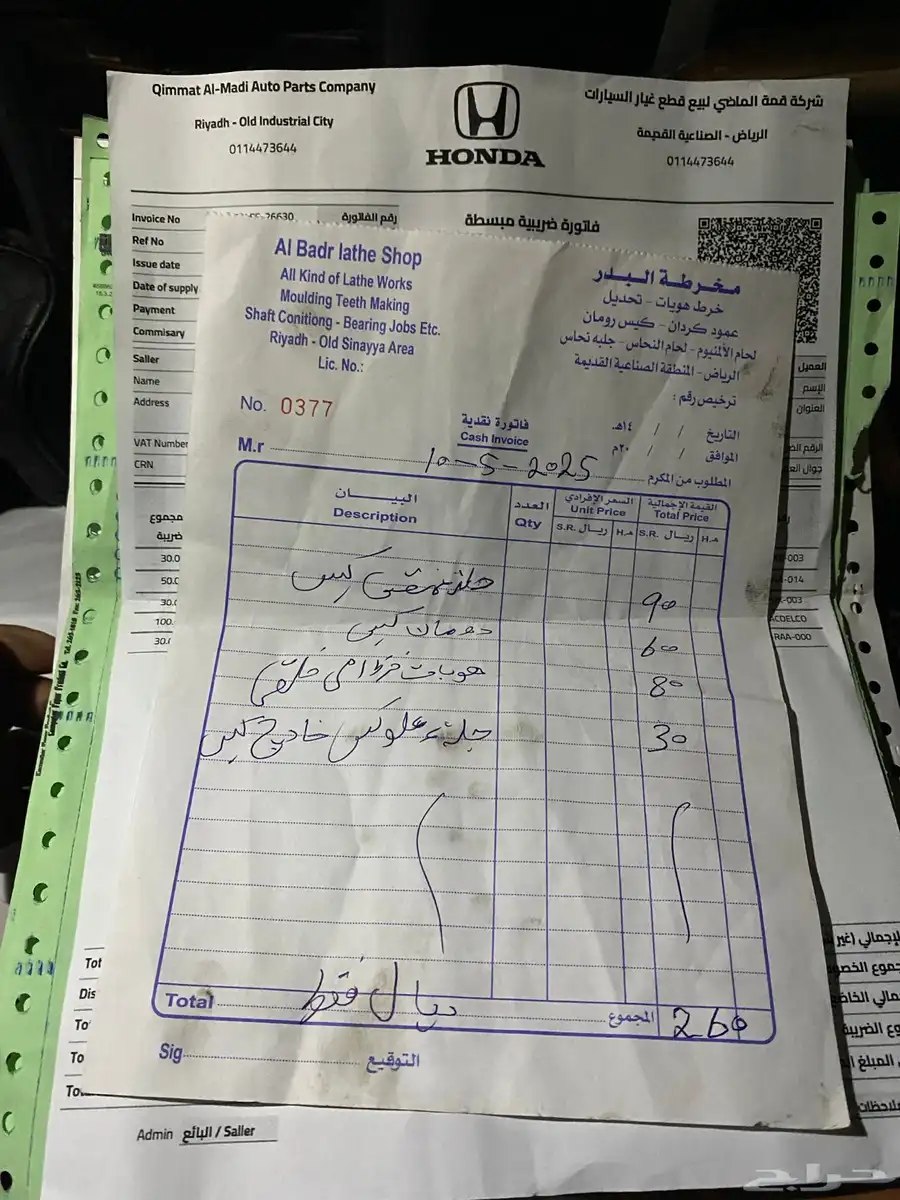 Qimmat Al-Madi Auto Parts Company
Riyadh - Old Industrial City
0114473644
HONDA
شركة قمة الماضي لبيع قطع غيار السيارات
الرياض - الصناعية القديمة
0114473644
Invoice No
26630
رقم الفاتورة
فاتورة ضريبية مبسطة
Ref No
Issue date
Date of supply
Payment
Commisary
Saller
Name
Address
VAT Number
CRN
العميل
الإسم
العنوان
مجموع
ضريبة
30.0
50.0
30.
100.
30.
-003
-014
-003
ACDELCO
RAA-000
Al Badr lathe Shop
All Kind of Lathe Works
Moulding Teeth Making
Shaft Conitiong - Bearing Jobs Etc.
Riyadh - Old Sinayya Area
Lic. No.:
مخرطة البدر
خرط هوبات - تحديل
عمود كردان - كيس رومان
لحام الألمنيوم - لحام النحاس - جلبه نحاس
الرياض - المنطقة الصناعية القديمة
ترخيص رقم :
No. 0377
فاتورة نقدية
Cash Invoice
التاريخ / / ١٤هـ
الموافق / / ٢٠م
M.r
المطلوب من المكرم
10-5-2025
البيــــان
Description
العدد
Qty
السعر الإفرادي
Unit Price
القيمة الإجمالية
Total Price
S.R. ريال
H.هـ
S.R. ريال
H.هـ
كيس 90
كيس 60
هوبات 80
جلدة خارج كيس 30
ريال فقط
Total
المجموع
260
Sig
التوقيع
Tot
Dis
To
To
Tot
Admin البائع / Saller
حراج